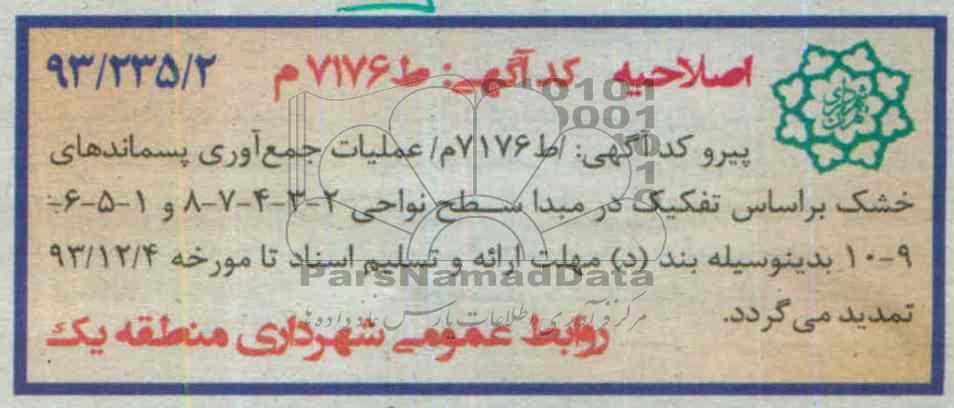 اصلاحیه کد آگهی: ط ۷۱۷۶ م ۹۳/۲۳۵/۲
پیرو کد آگهی: /ط۷۱۷۶م/ عملیات جمع‌آوری پسماندهای
خشک براساس تفکیک در مبدا سطح نواحی ۲-۳-۴-۷-۸ و ۱-۵-۶-
۹-۱۰ بدینوسیله بند (د) مهلت ارائه و تسلیم اسناد تا مورخه ۹۳/۱۲/۴
تمدید می‌گردد.
روابط عمومی شهرداری منطقه یک
ParsNamadData
مرکز فرآوری اطلاعات پارس نماد داده ها